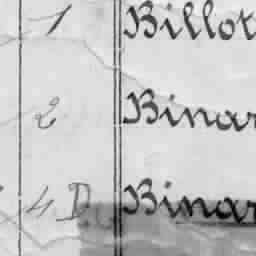 1 Billot
2 Binar
4 D Binar